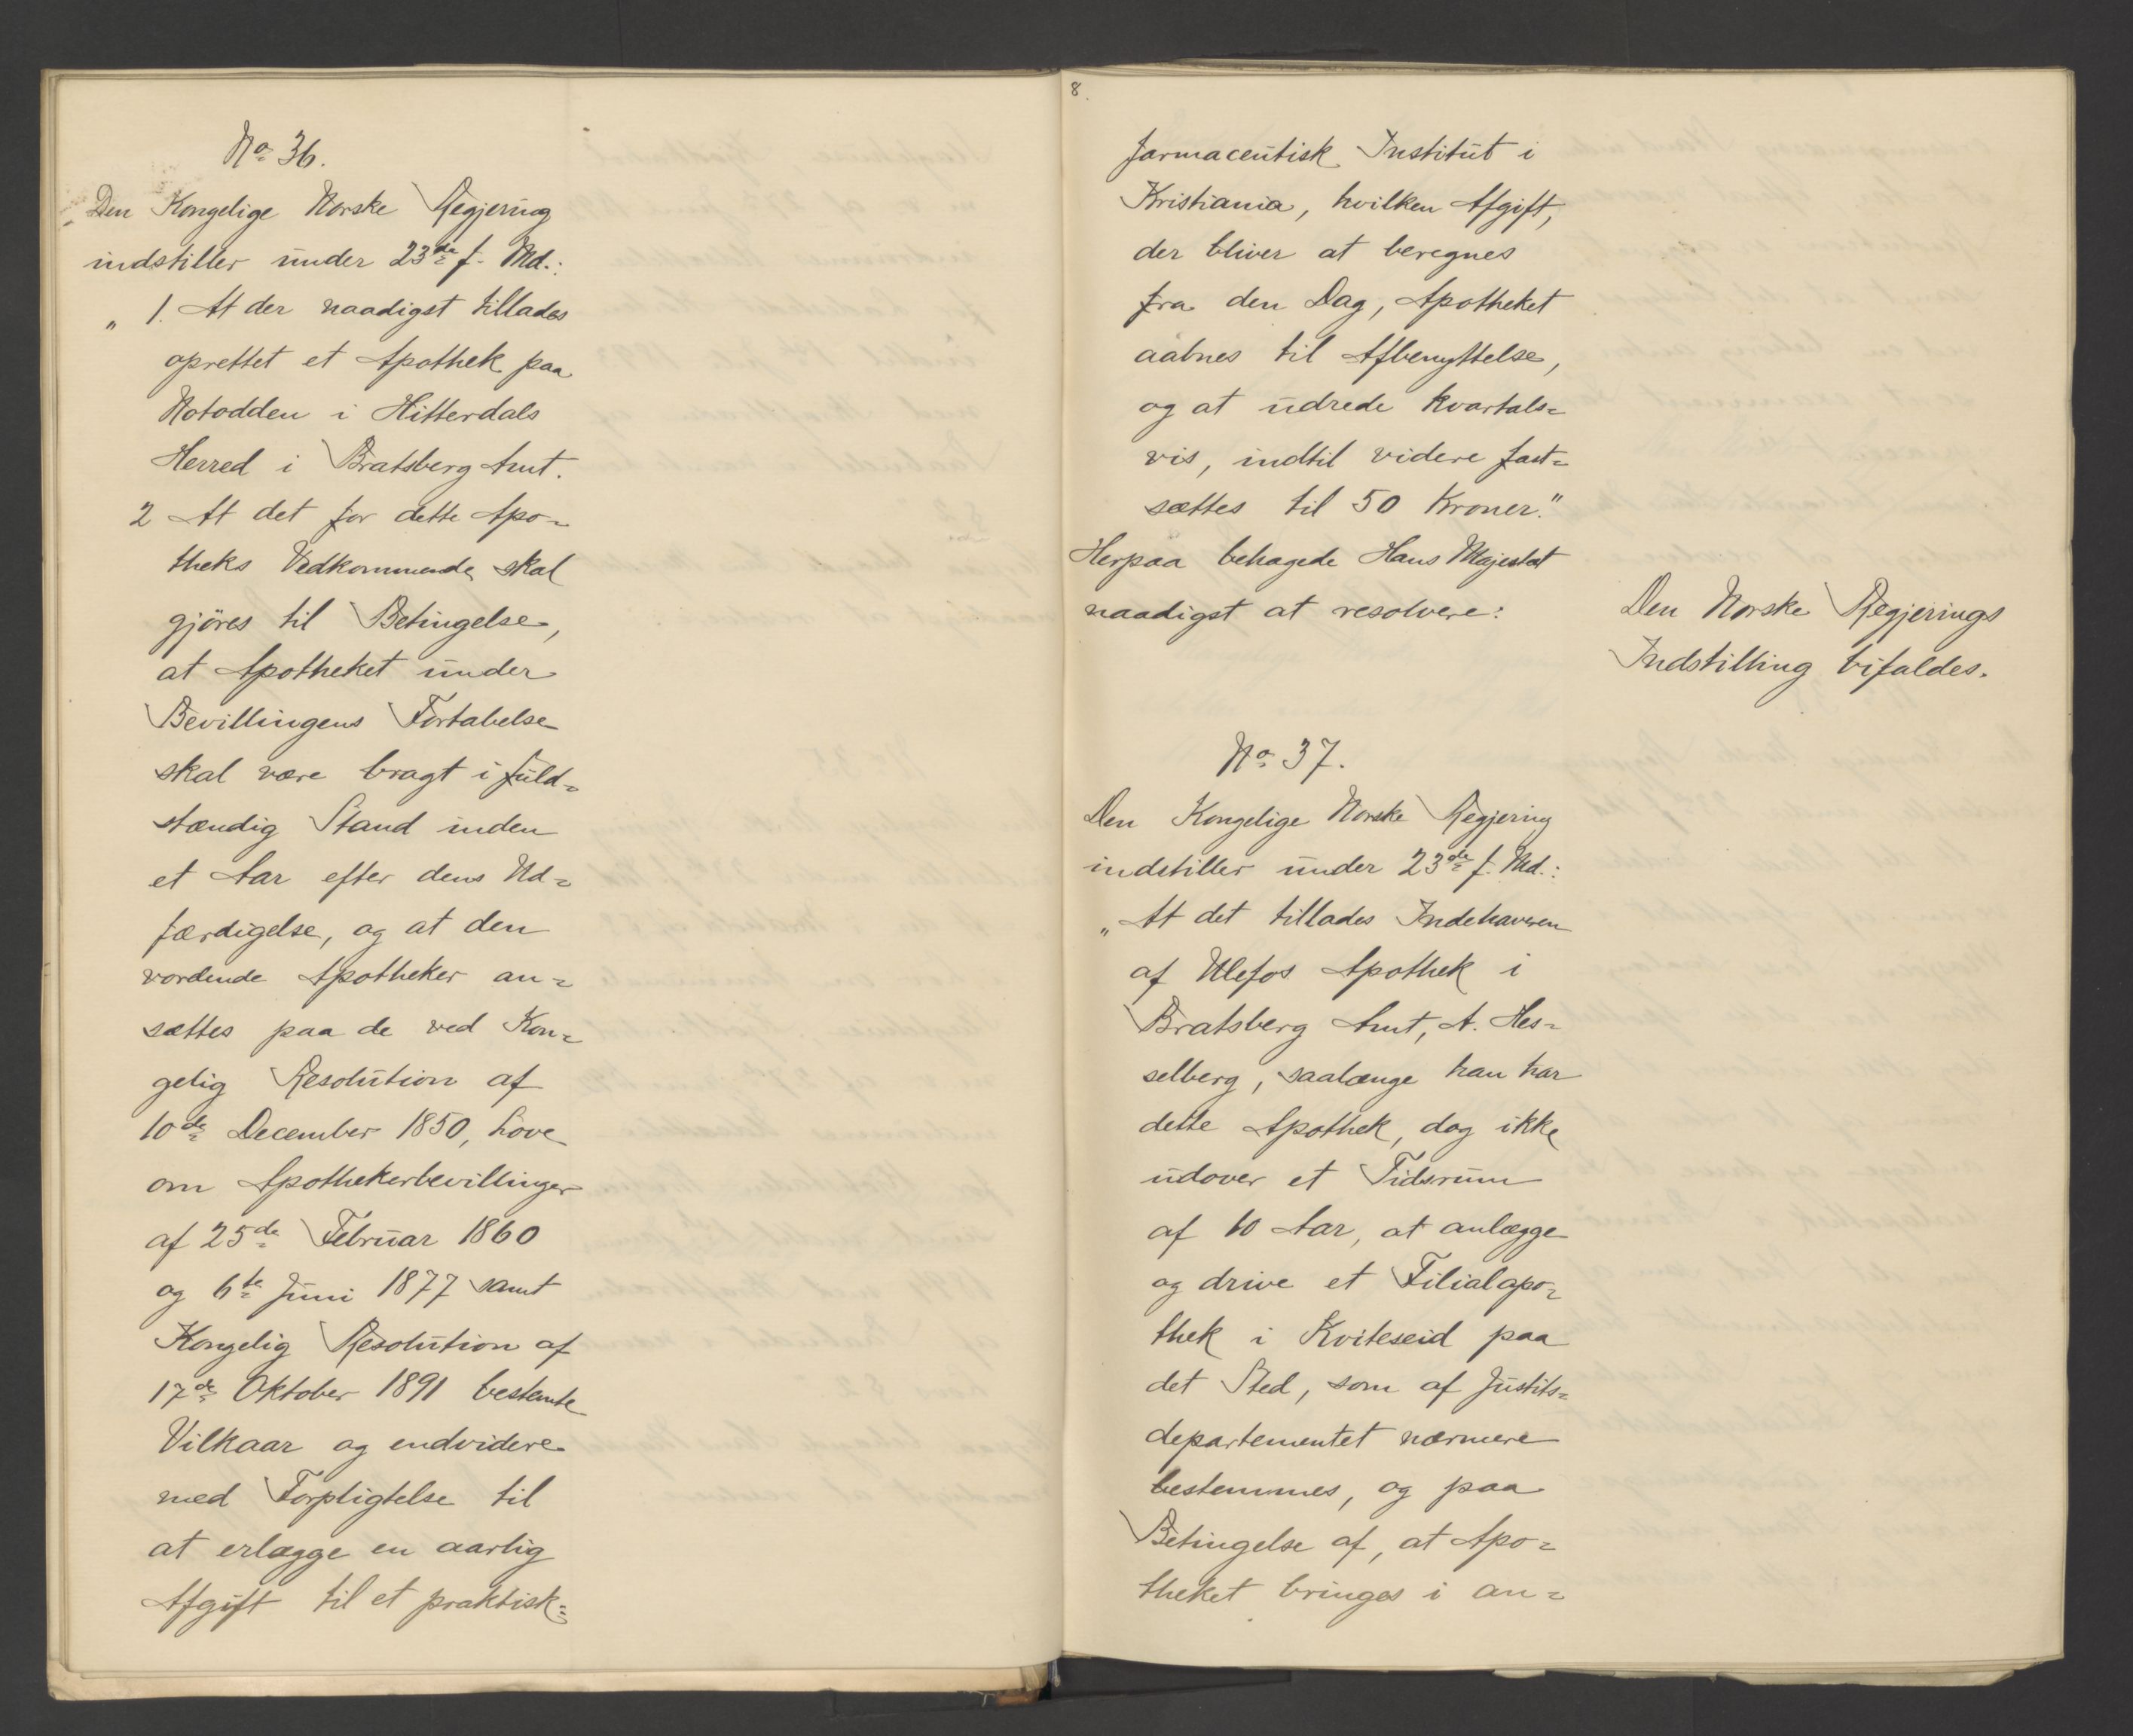 No 36.
Den Kongelige Norske Regjering
indstiller under 23de f. Md.:
„ 1. At der naadigst tillades
oprettet et Apothek paa
Notodden i Hitterdals
Herred i Bratsberg Amt.
2 At det for dette Apo=
theks Vedkommende skal
gjöres til Betingelse,
at Apotheket under
Bevillingens Fortabelse
skal være bragt i fuld=
stændig Stand inden
et Aar efter dens Ud=
færdigelse, og at den
vordende Apotheker an=
sættes paa de ved Kon=
gelig Resolution af
10de December 1850, Love
om Apothekerbevillinger
af 25de Februar 1860
og 6te Juni 1877 samt
Kongelig Resolution af
17de Oktober 1891 bestemte
Vilkaar og endvidere
med Forpligtelse til
at erlægge en aarlig
Afgift til et praktisk=
8.
farmaceutisk Institut i
Kristiania, hvilken Afgift,
der bliver at beregnes
fra den Dag, Apotheket
aabnes til Afbenyttelse,
og at udrede kvartals=
vis, indtil videre fast=
sættes til 50 Kroner."
Herpaa behagede Hans Majestæt
naadigst at resolvere:
Den Norske Regjerings
Indstilling bifaldes.
No 37.
Den Kongelige Norske Regjering
indstiller under 23de f. Md.:
„At det tillades Indehaveren
af Ulefos Apothek i
Bratsberg Amt, A. Hes=
selberg, saalænge han har
dette Apothek, dog ikke
udover et Tidsrum
af 10 Aar, at anlægge
og drive et Filialapo=
thek i Kviteseid paa
det Sted, som af Justits=
departementet nærmere
bestemmes, og paa
Betingelse af, at Apo=
theket bringes i an=